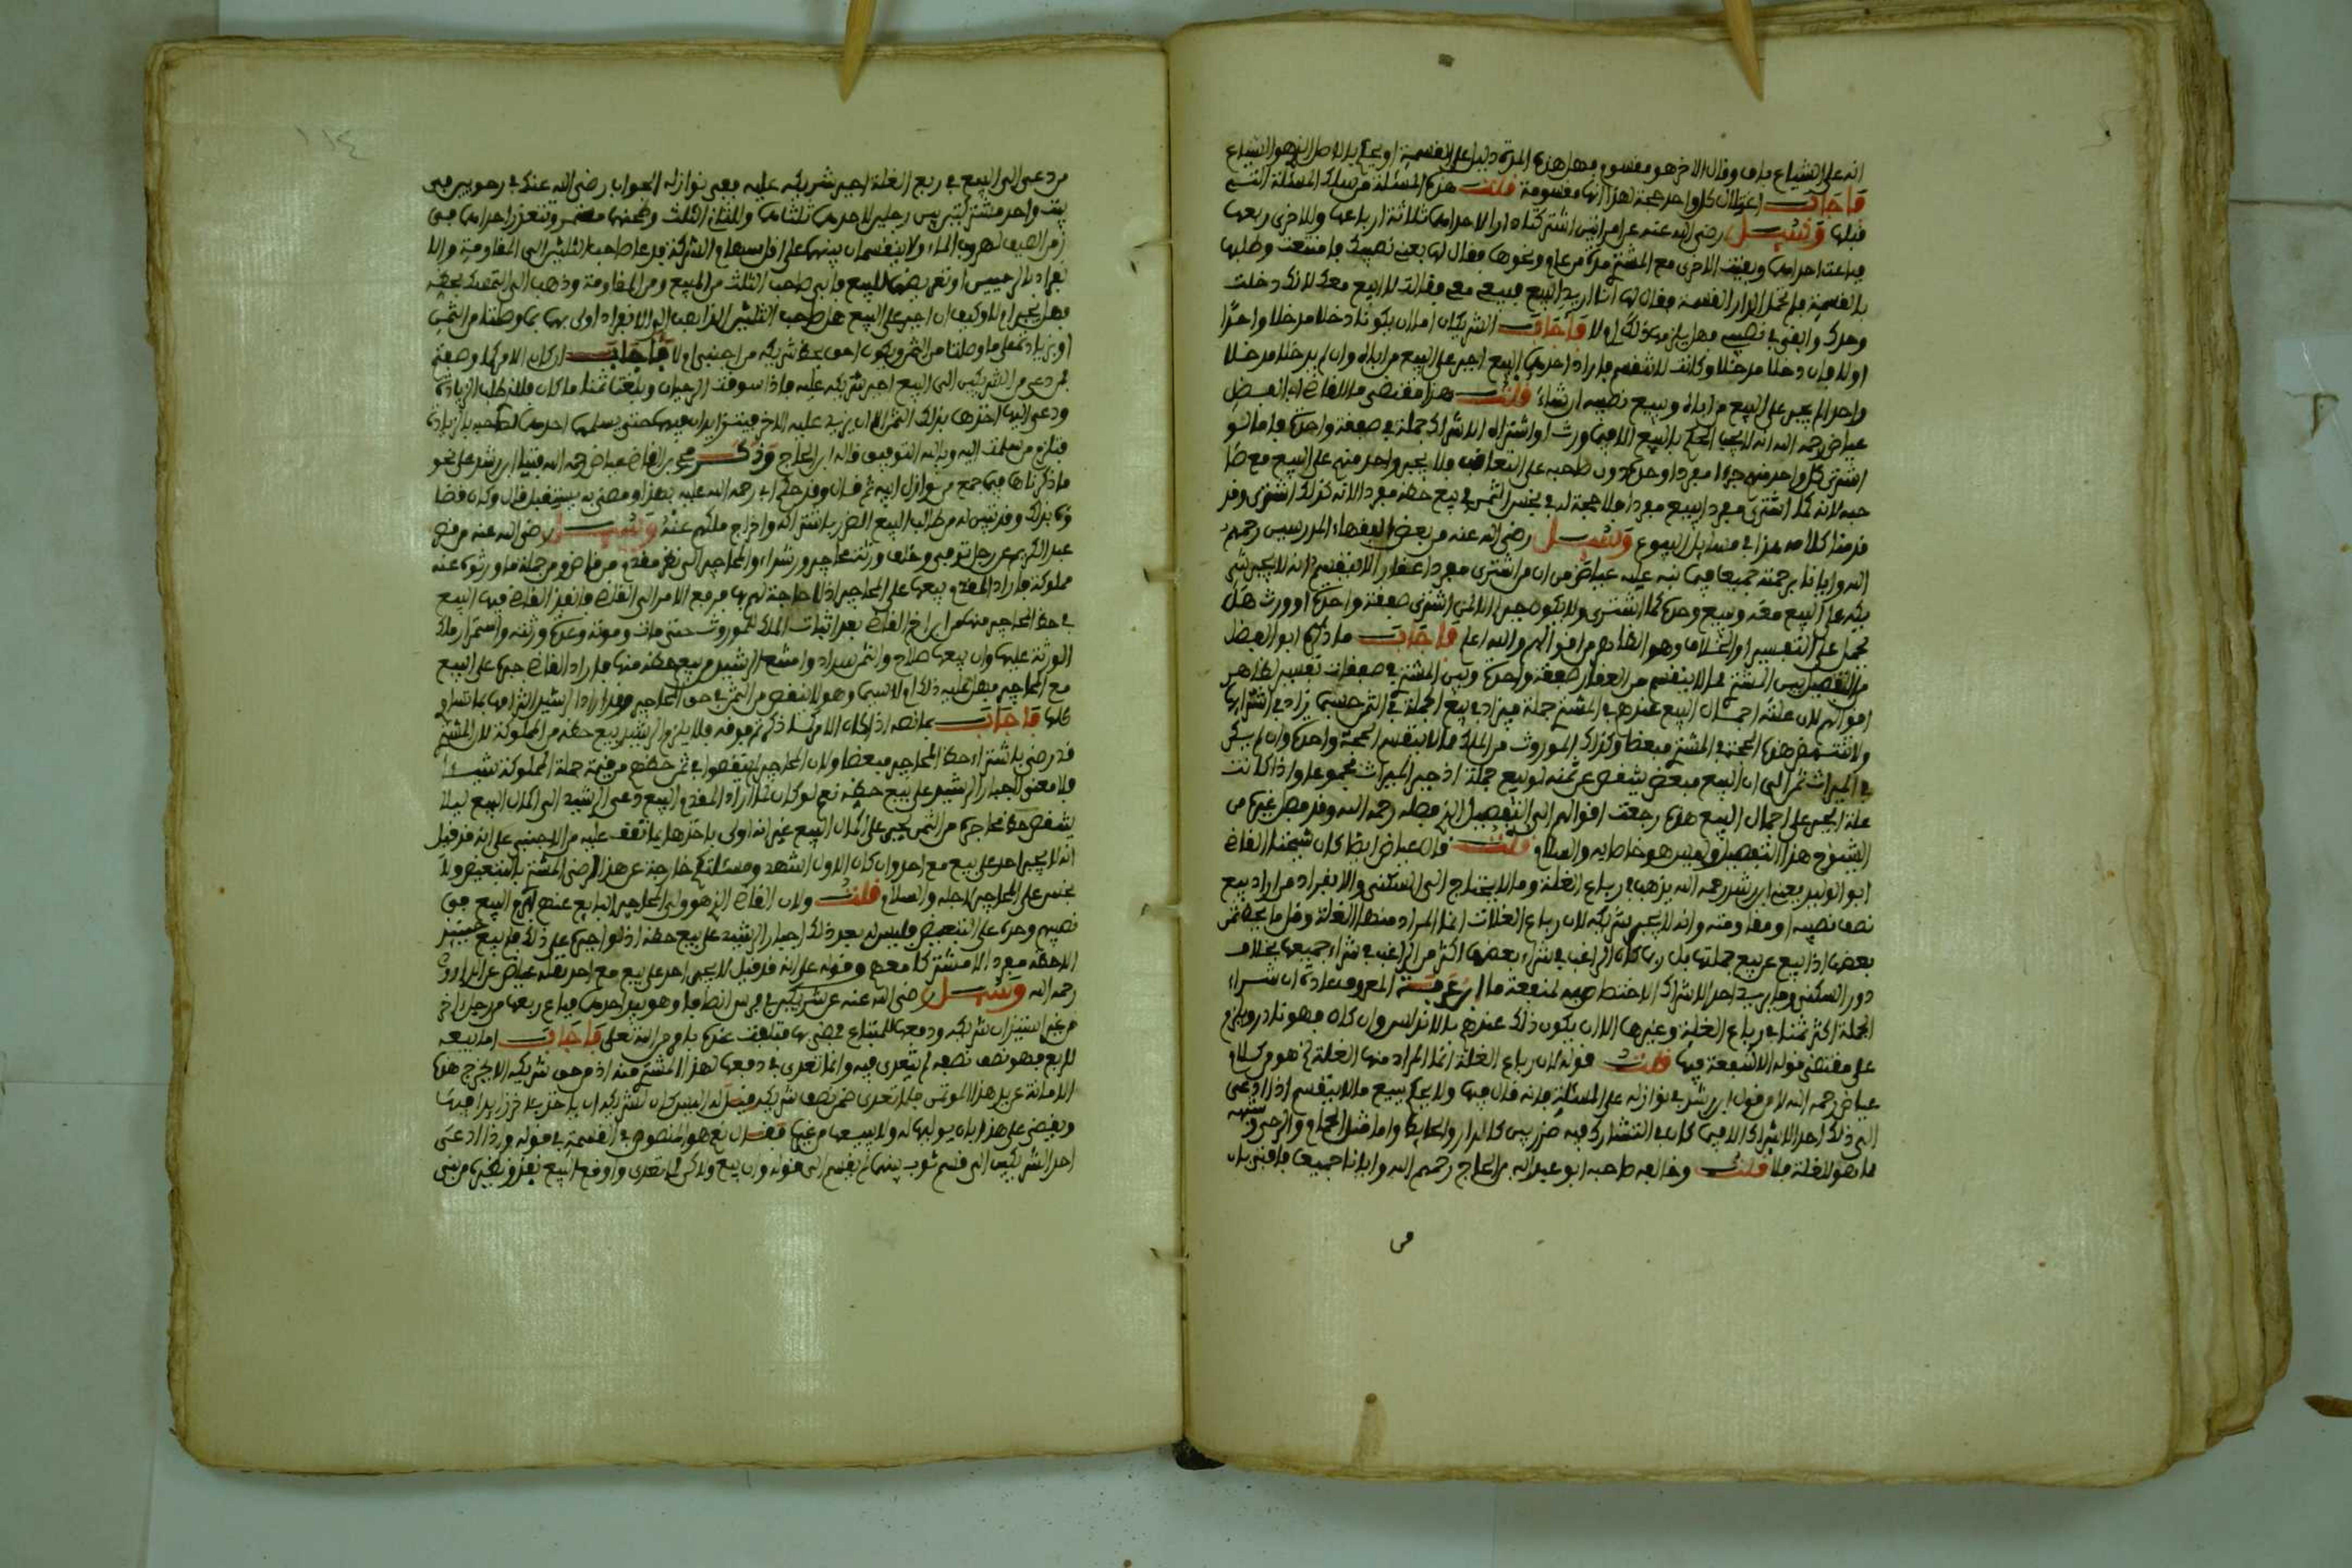 انه على الشياع باق وقال الاخر هو مقسوم فهل هذه المدة دليل على القسمة او يحكم بالاصل الذي هو الشياع
فاجاب اعتلال كل واحد حجة لهذا انها مقسومة قلت هذه المسئلة من تلك المسئلة التي
قبلها وسئل رضي الله عنه عن امراتين اشتركتا في دار لاحداهما ثلاثة ارباعها وللاخرى ربعها
فباعت احداهما وبقيت الاخرى مع المشتري مدة من عام ونحوها فقال لها بعني نصيبك فامتنعت وطلبها
بالقسمة فلم تحمل الدار القسمة فقال لها انا اريد البيع فبيعي معي فقالت لا ابيع معك لانك دخلت
وحدك وابقى في نصيبي فهل يلزمها ذلك ام لا فاجاب الشريكان اما ان يكونا دخلا مدخلا واحدا
او لا فان دخلا مدخلا وكانت لا تنقسم فاراد احدهما البيع اجبر على البيع من اباه وان لم يدخلا مدخلا
واحدا لم يجبر على البيع من اباه ويبيع نصيبه ان شاء قلت هذا مقتضى ما للقاضي ابي الفضل
عياض رحمه الله انه لا يجب الحكم بالبيع الا فيما ورث او اشتراه الاشراك جملة في صفقة واحدة فاما لو
اشترى كل واحد منهم جزءا مفردا وحده دون صاحبه على التعاقب فلا يجبر واحد منهم على البيع مع صا
حبه لانه كما اشترى مفردا يبيع مفردا فلا حجة له في بخس الثمن في بيع حظه مفردا لانه كذلك اشترى وقد
قدمنا كلامه هذا في مسايل البيوع وسئل رضي الله عنه من بعض الفقهاء المدرسين رحمهم
الله وايانا برحمته جميعا فيما نبه عليه عياض من ان من اشترى مفردا عقارا لا ينقسم انه لا يجبر شر
يكه على البيع معه ويبيع وحده كما اشترى ولا يكون جبر الا لمن اشترى صفقة واحدة او ورث هل
يحمل على التفسير او الخلاف وهو الظاهر من اقوالهم والله اعلم فاجاب ما ذكره ابو الفضل
من التفصيل بين المشتري لما لا ينقسم من العقار صفقة واحدة وبين المشتري في صفقات تفسير لظاهر
اقوالهم لان علته اجمال البيع عندهم في المشتري جملة فيزاد في بيع الجملة في الثمن حسبما زاد في اشترائها
ولا تنتهض هذه الحجة في المشتري مبعضا وكذلك الموروث من الملك مما لا ينقسم الحجة واحدة وان لم يكن
في الميراث ثمن الى ان البيع مبعض ينقص عن ثمنه لو بيع جملة اذ جبر الميراث مجموعا واذا كانت
علة الجبر على اجمال البيع هذه رجعت اقوالهم الى التفصيل الذي فصله رحمه الله وقد فصل غيره من
الشيوخ هذا التفصيل وليس هو خاصا به والسلام قلت قال عياض ايضا كان شيخنا القاضي
ابو الوليد يعني ابن رشد رحمه الله يذهب في رباع الغلة وما لا يحتاج الى السكنى والانفراد من اراد بيع
نصف نصيبه او مقاومته وانه لا يجبر شريكه لان رباع الغلات انما المراد منها الغلة وقل ما يحط ثمن
بعضها اذا بيع عن بيع جملتها بل ربما كان الراغب في شراء بعضها اكثر من الراغب في شراء جميعها بخلاف
دور السكنى وما يريد احد الاشراك الاختصاص به لمنفعة ما ابن عرفة المعروف عادة ان شراء
الجملة اكثر ثمنا في رباع الغلة وغيرها الا ان يكون ذلك عندهم بالاندلس وان كان فهو نادر ويلزم
على مقتضى قوله الا شفعة فيها قلت قوله لان رباع الغلة انما المراد منها الغلة الخ هو من كلام
عياض رحمه الله لا من قول ابن رشد في نوازله على المسئلة فانه قال فيها ولا يحكم ببيع ما لا ينقسم اذا ادعى
الى ذلك احد الاشراك الا فيما كان في التشارك فيه ضرر بين كالدار والحايط واما مثل الحمام والرحى وشبهه
مما هو للغلة فلا قلت وخالفه صاحبه ابو عبد الله بن الحاج رحمهم الله وايانا جميعا فافتى بان
من
١١٤
من دعى الى البيع في ربع الغلة اجبر شريكه عليه ففي نوازله الجواب رضي الله عنك في رحوين في
بيت واحد مشتركتين بين رجلين لاحدهما ثلثاهما وللثاني الثلث
زمن الصيف لهروب الماء ولا ينقسمان بينهما على اقل سهام الشركة فدعا صاحب الثلثين الى المقاومة والا
فابى صاحب الثلث من البيع ومن المقاومة وذهب الى التمسك بحظه
فهل يجبر ام لا وكيف ان اجبر على البيع هل صاحب الثلثين الذاهب الى الانفراد اولى بهما بما وصلتا من الثمن
او بزيادة على ما وصلتا من الثمن ويكون احق بحظ شريكه من اجنبي ام لا فاجاب ان كان الامر كما وصفته
فمن دعى من الشريكين الى البيع اجبر شريكه عليه فاذا سوقت الرحوان وبلغتا ثمنا ما كان فلمن طلب الزيادة
ودعى اليها اخذها بذلك الثمن الا ان يزيد عليه الاخر فيتزايدان فيها حتى يسلمها احدهما لصاحبه بالزيادة
فتلزم من سلمت اليه وبالله التوفيق قاله ابن الحاج وذكر محمد بن القاضي عياض رحمه الله فتيا ابن رشد على نحو
ما ذكرناها فيما جمع من نوازل ابيه ثم قال وقد حكم ابي رحمه الله عليه بهذا ومضى به يستقبل قال وكان قضا
ؤه بذلك وقد تبين له من طالب البيع الضرر باشتراكه واخراج ملكهم عنه وسئل رضي الله عنه من قبل
عبد الكريم عن رجل توفي وخلف ورثة محاجير ورشداء والمحاجير الى نظر مقدم من قاض ومن جملة ما ورثوه عنه
مملوكة فاراد المقدم بيعها على المحاجير اذ لا حاجة لهم بها فرفع الامر الى القاضي فانفذ القاضي فيها البيع
في حظ المحاجير منها بعد اثبات الملك للموروث حتى مات وموته وعدة ورثته واستمرار ملك
الورثة عليها وان بيعها صلاح والثمن سداد وامتنع الرشيد من بيع حظه منها فاراد القاضي جبره على البيع
مع المحاجير فهل عليه ذلك ام لا سيما وهو لا ينقص من الثمن في حق المحاجير
كلها فاجاب بما نصه اذا كان الامر كما ذكرتم فوقه فلا يلزم الرشيد بيع حظه من المملوكة لان المشتري
قد رضي باشتراء حظ المحاجير مبعضا ولان المحاجير لم ينقصوا في ثمن حظهم من قيمة جملة المملوكة شيئا
فلا معنى لاجبار الرشيد على بيع حظه نعم لو كان لما اراد المقدم البيع دعى الرشيد الى اكمال البيع ليلا
ينقص حظ محاجره من الثمن يجبر على اكمال البيع غير انه اولى باخذها بما تقف عليه من الاجنبي على انه قد قيل
انه لا يجبر احد على بيع مع احد وان كان الاول اشهر ومسئلتكم خارجة عن هذا لرضى المشتري بالتبعيض ولا
بخس على المحاجير لاجله والسلام قلت ولان القاضي الذي هو ولي المحاجير البايع عنهم امضى البيع في
نصيبهم وحده على التبعيض فليس له بعد ذلك اجبار الرشيد على بيع حظه اذ لو اجبره على ذلك فلم يبع حينئذ
الا حظه مفردا لا مشتركا معهم وقوله على انه قد قيل لا يجبر احد على بيع مع احد نقله عياض عن الداودي
رحمه الله وسئل رضي الله عنه عن شريكين في فرس انصافا وهو بيد احدهما فباع ربعها من رجل اخر
من غير استيذان شريكه ودفعها للمبتاع فمضى بها فتلفت عنده بامر من الله تعالى فاجاب اما بيعه
للربع فهو نصف نصفه لم يتعدى فيه وانما تعدى في دفعها لهذا المشتري منه اذ من حق شريكه الا يخرج هذه
الامانة عن يد هذا المؤتمن فلما تعدى ضمن نصف شريكه فقيل له اليس كان لشريكه ان ياخذها
ويفيض على هذا بان يوليها له ولا يبيعها من غيره فقال نعم هو المنصوص في القسمة في قوله واذا ادعى
احد الشريكين الى قسم ثوب بينهما لم يقسم الى قوله وان بيع ولكن لما تعدى واوقع البيع نفذ